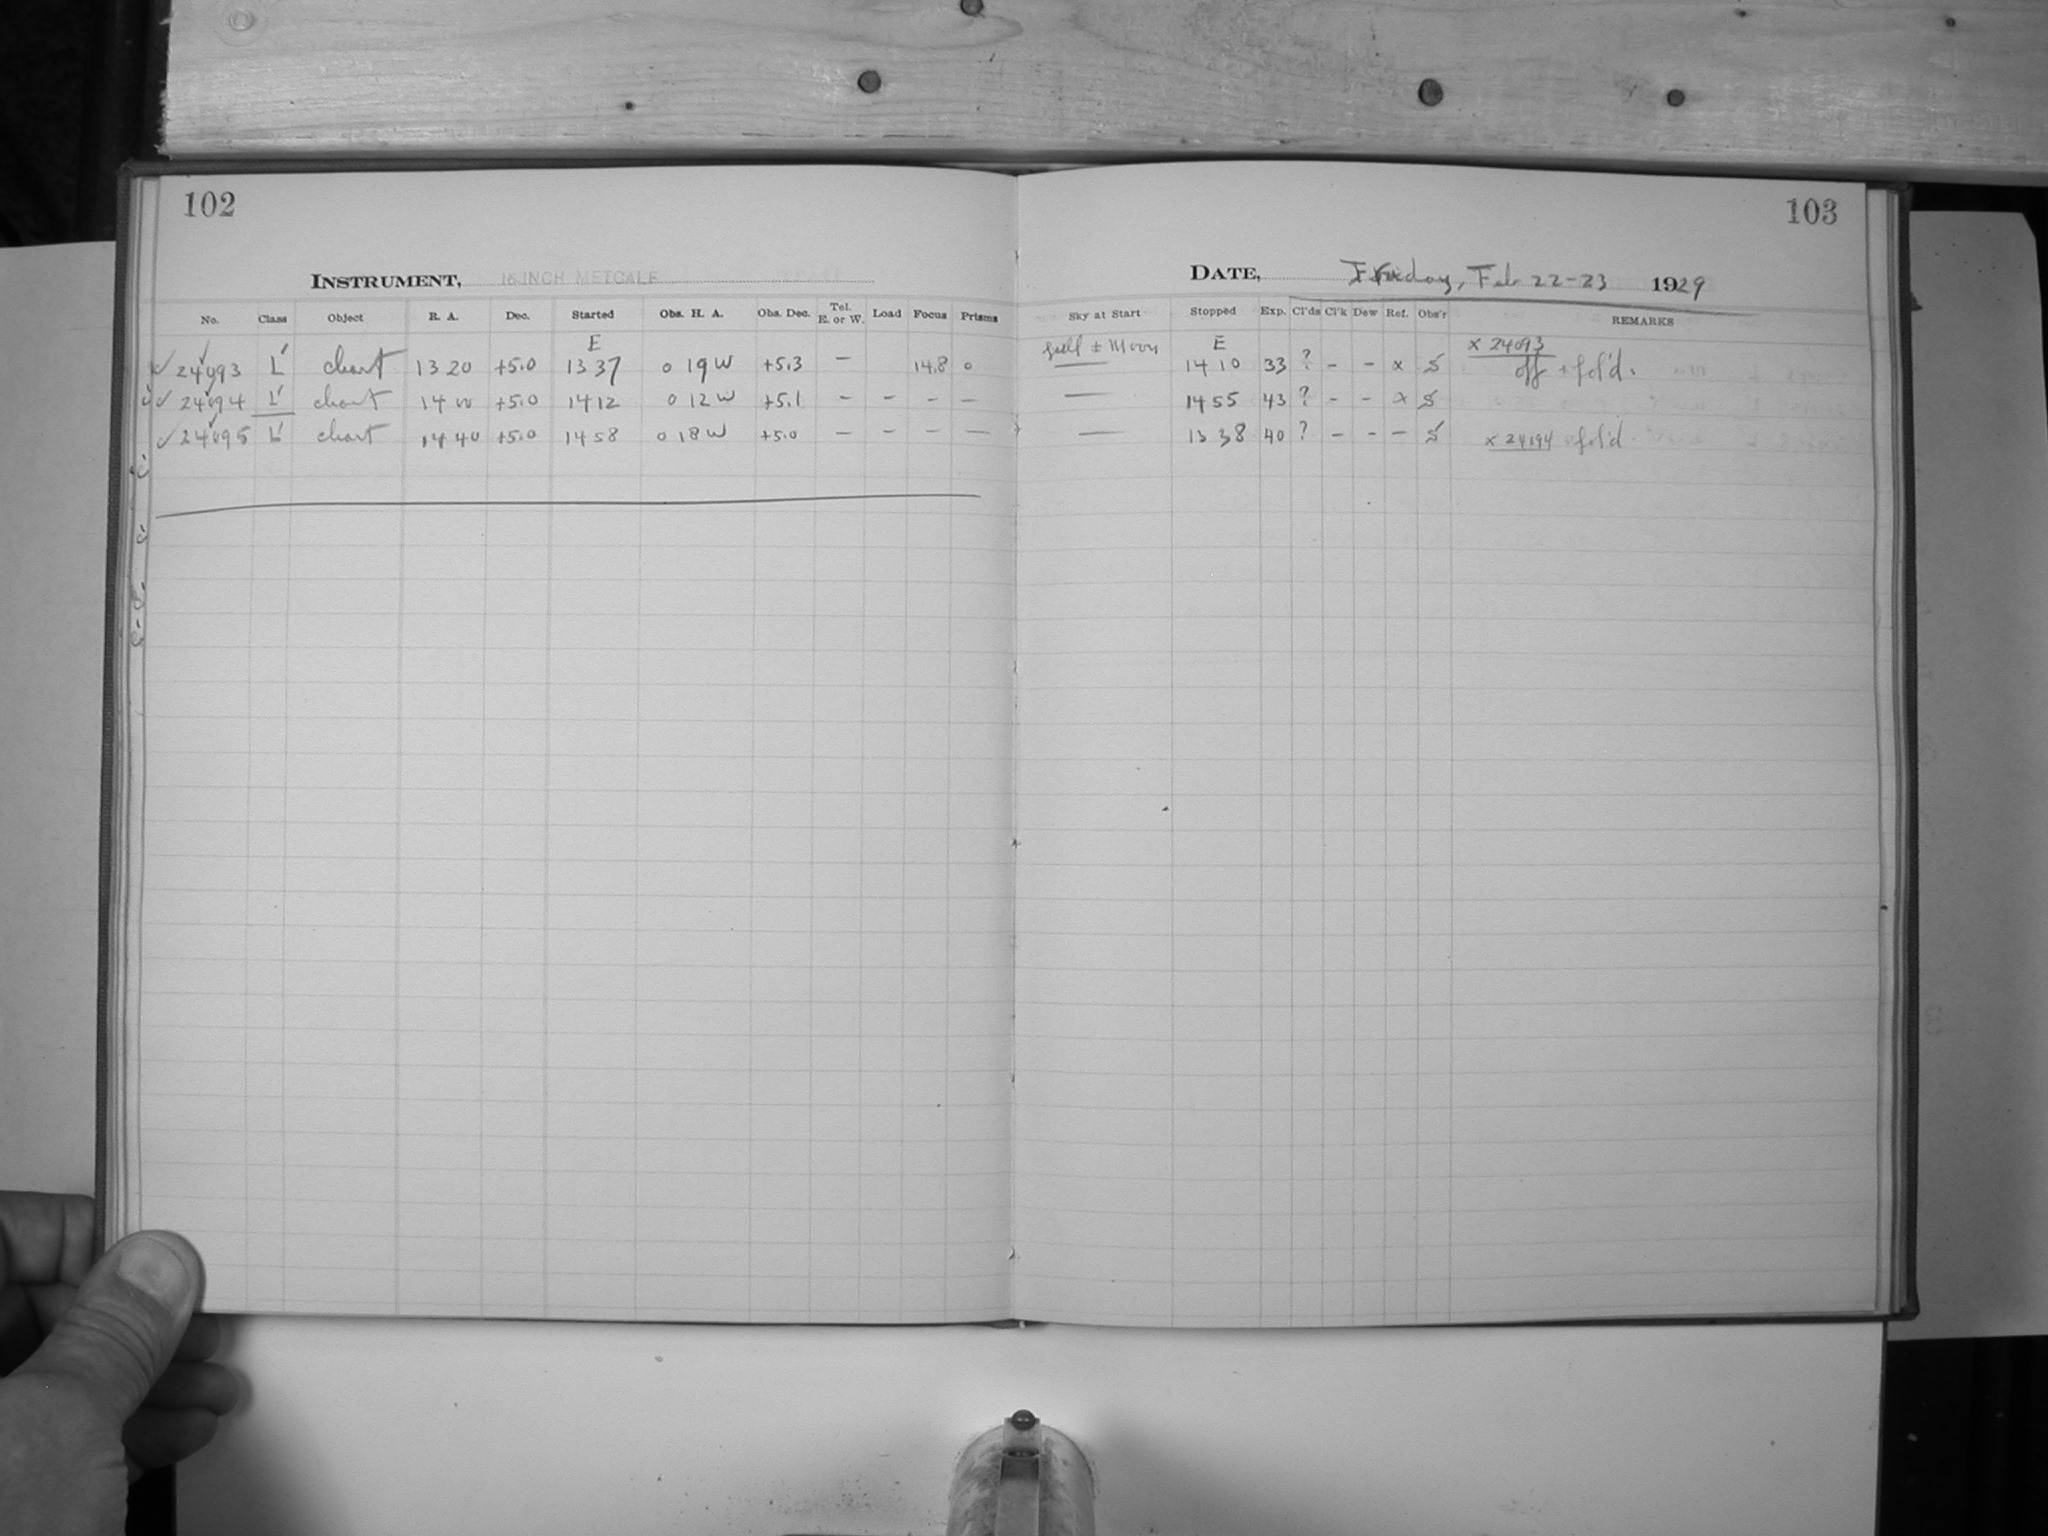 102
INSTRUMENT, 16 INCH METCALF
No. Class Object R. A. Dec. Started Obs. H. A. Obs. Dec. Tel. E. or W. Load Focus Prisms
E
✓ 24093 L chart 13 20 +5.0 13 37 0 19 W +5.3 — 14.8 0
✓ 24094 L chart 14 00 +5.0 14 12 0 12 W +5.1 — — — —
✓ 24095 L chart 14 40 +5.0 14 58 0 18 W +5.0 — — — —
103
DATE, Friday, Feb 22-23 1929
Sky at Start Stopped Exp. Cl'ds Cl'k Dew Ref. Obs'r REMARKS
full ± Moon E x 24093
— 14 10 33 ? - - x S off + fol'd.
— 14 55 43 ? - - x S
— 13 38 40 ? - - - S x 24194 fol'd